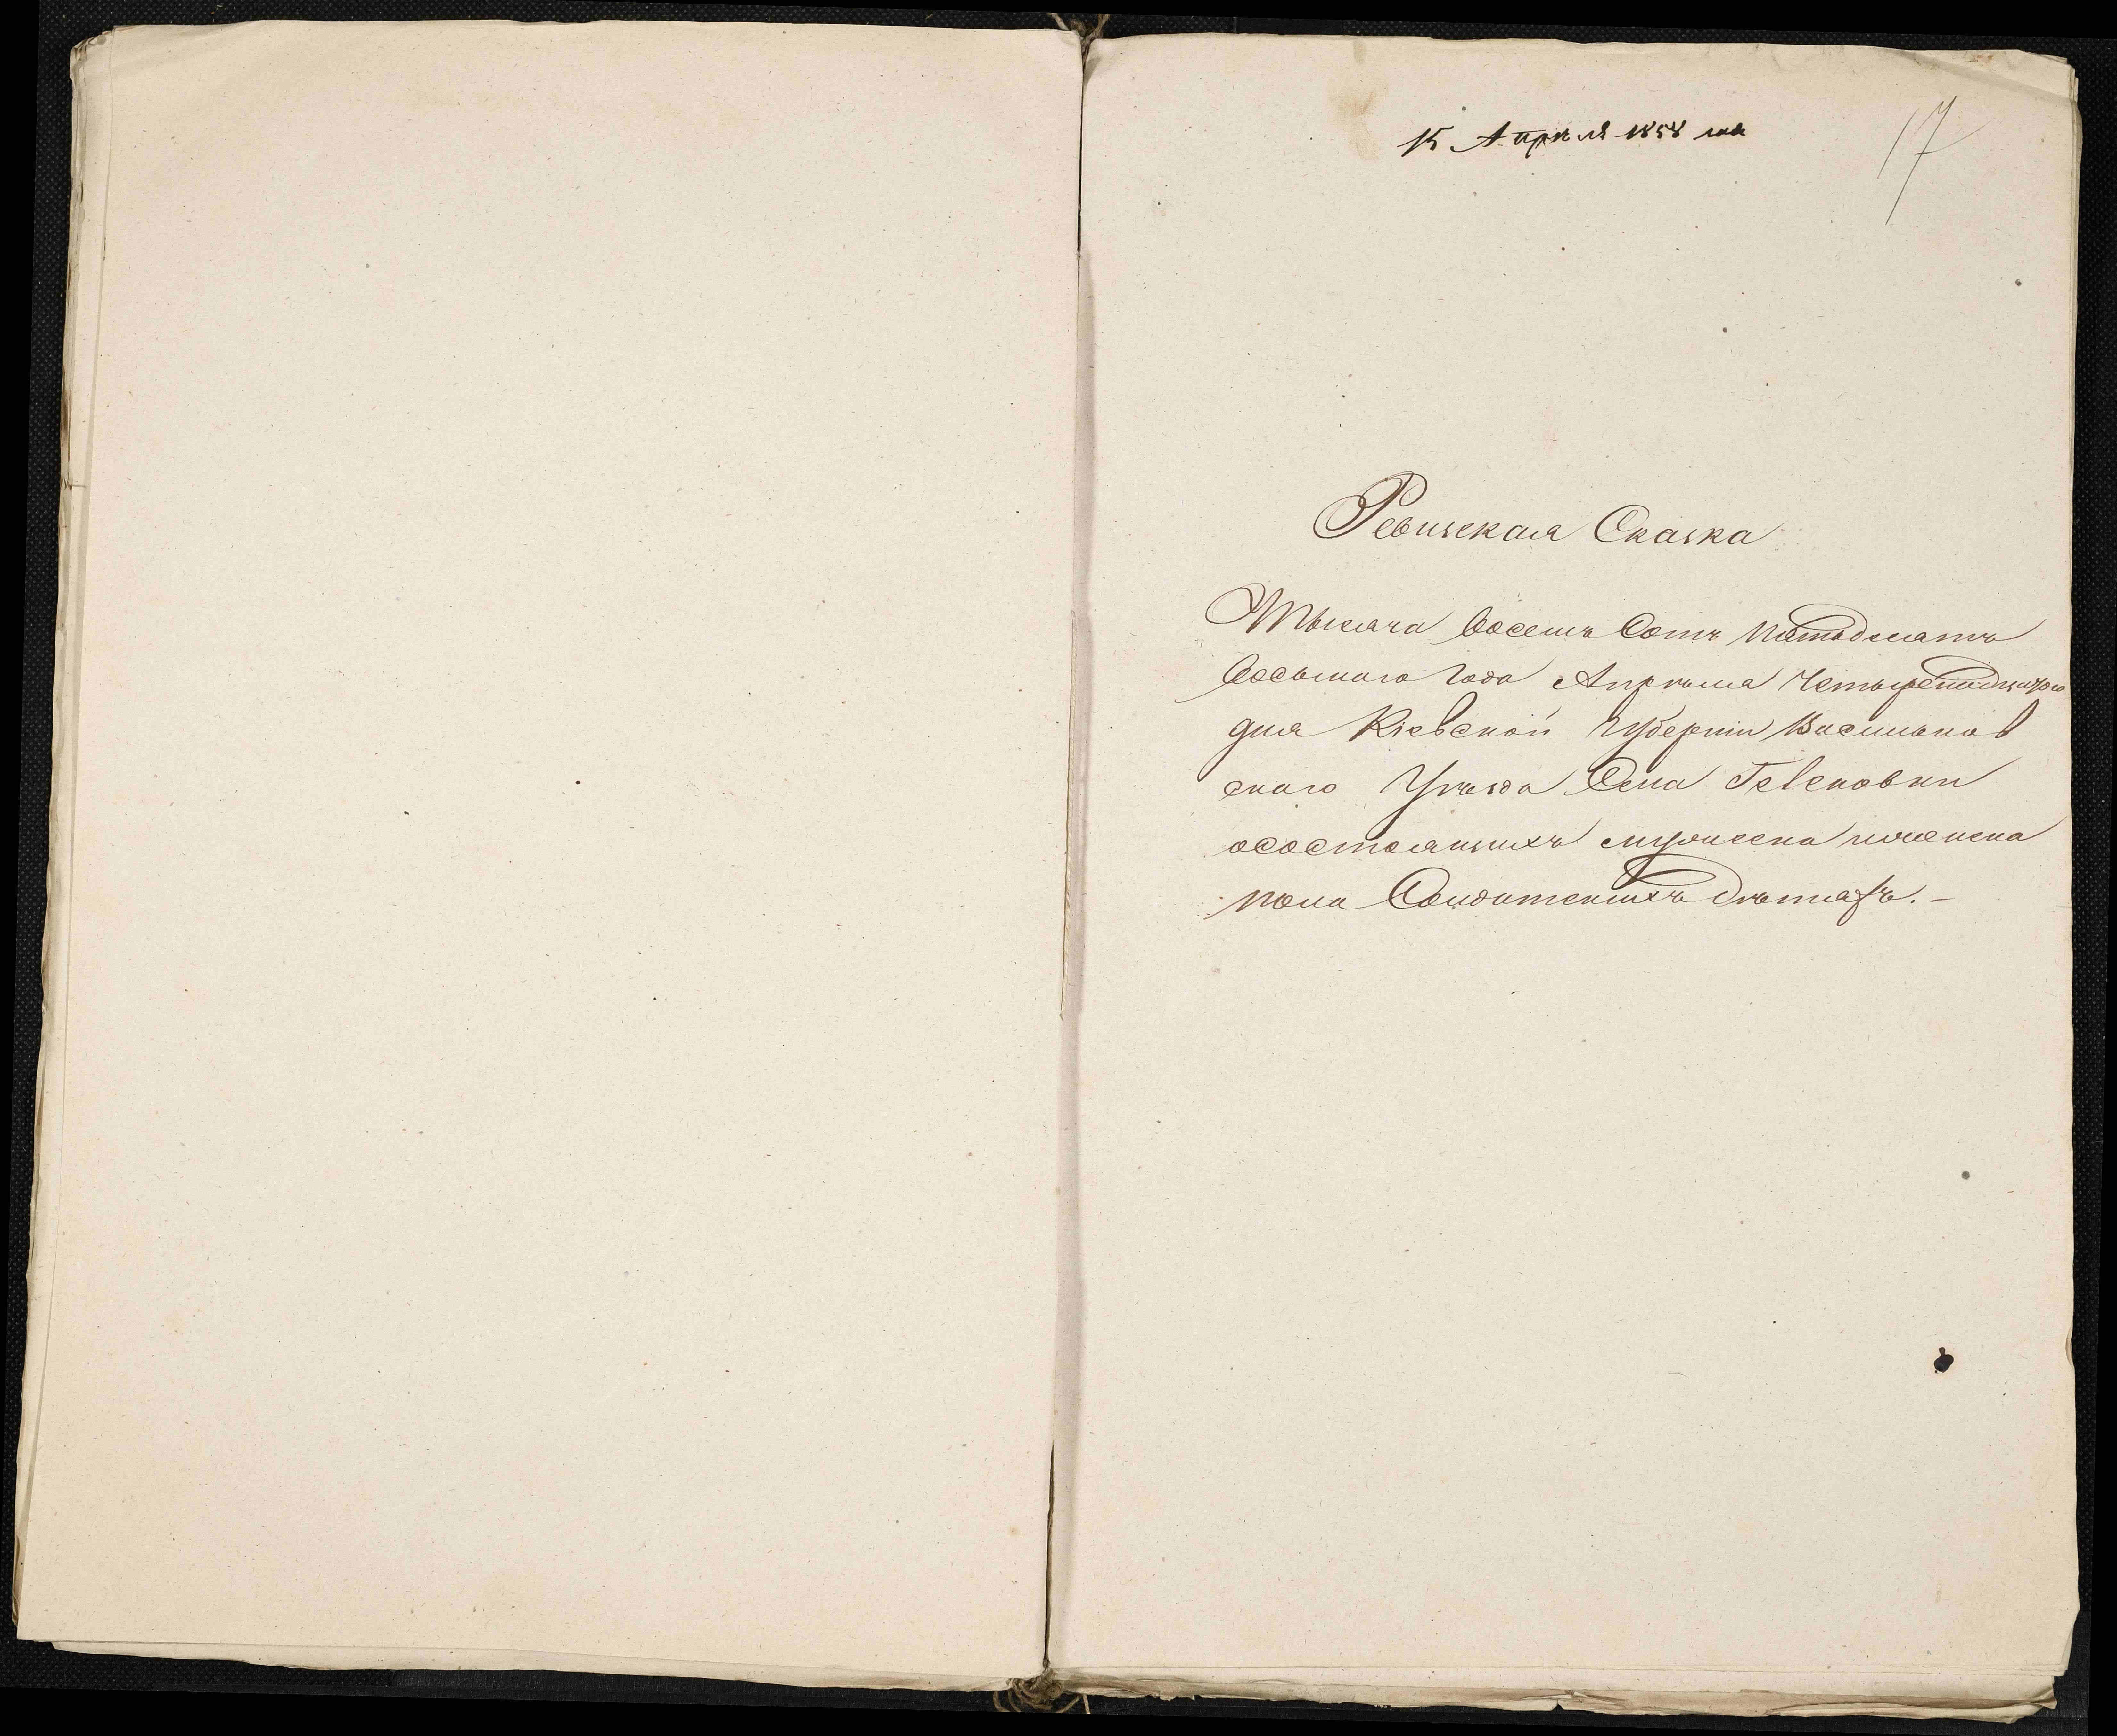 15 Апреля 1858 года
17
Ревизская Сказка
Тысяча Восемь Сотъ пятьдесятъ
Восьмаго Года Апрѣля Четырнадцатаго
дня Кіевской Губерніи Васильков
скаго Уѣзда Села
осостоящихъ мужеска иженска
пола Солдатскихъ дѣтяхъ. —